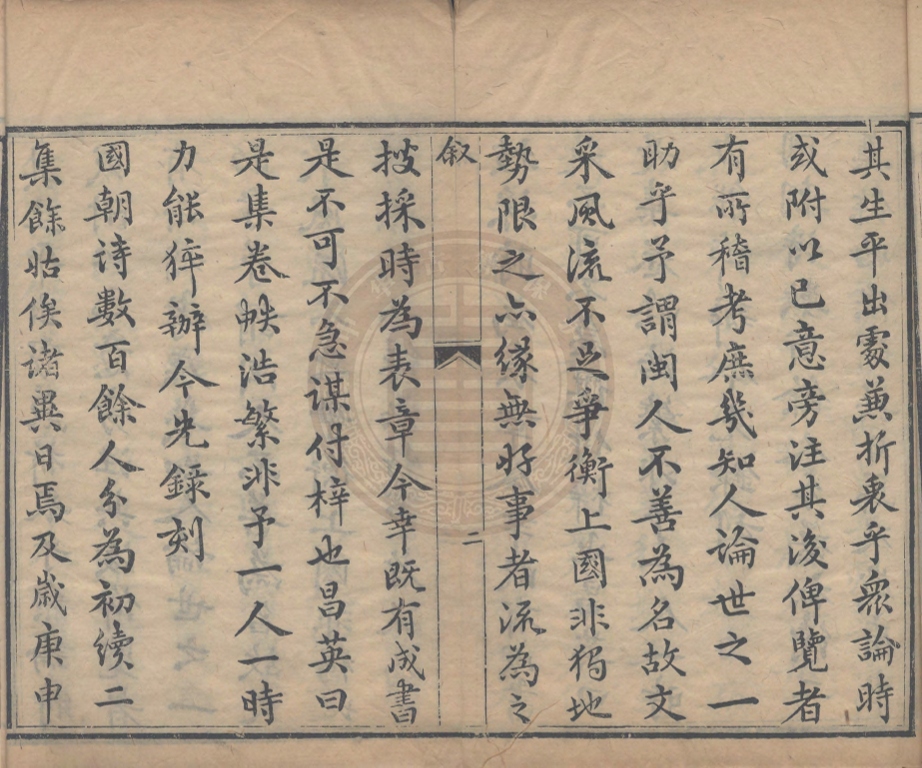 其生平出處兼折衷乎衆論時
或附以己意旁注其後俾覽者
有所稽考庶幾知人論世之一
助乎予謂閩人不善為名故文
采風流不足爭衡上國非獨地
勢限之亦緣無好事者流為之
叙
二
搜採時為表章今幸既有成書
是不可不急謀付梓也昌英曰
是集卷帙浩繁非予一人一時
力能猝辦今先錄刻
國朝诗數百餘人分為初續二
集餘姑俟诸異日焉及歲庚申